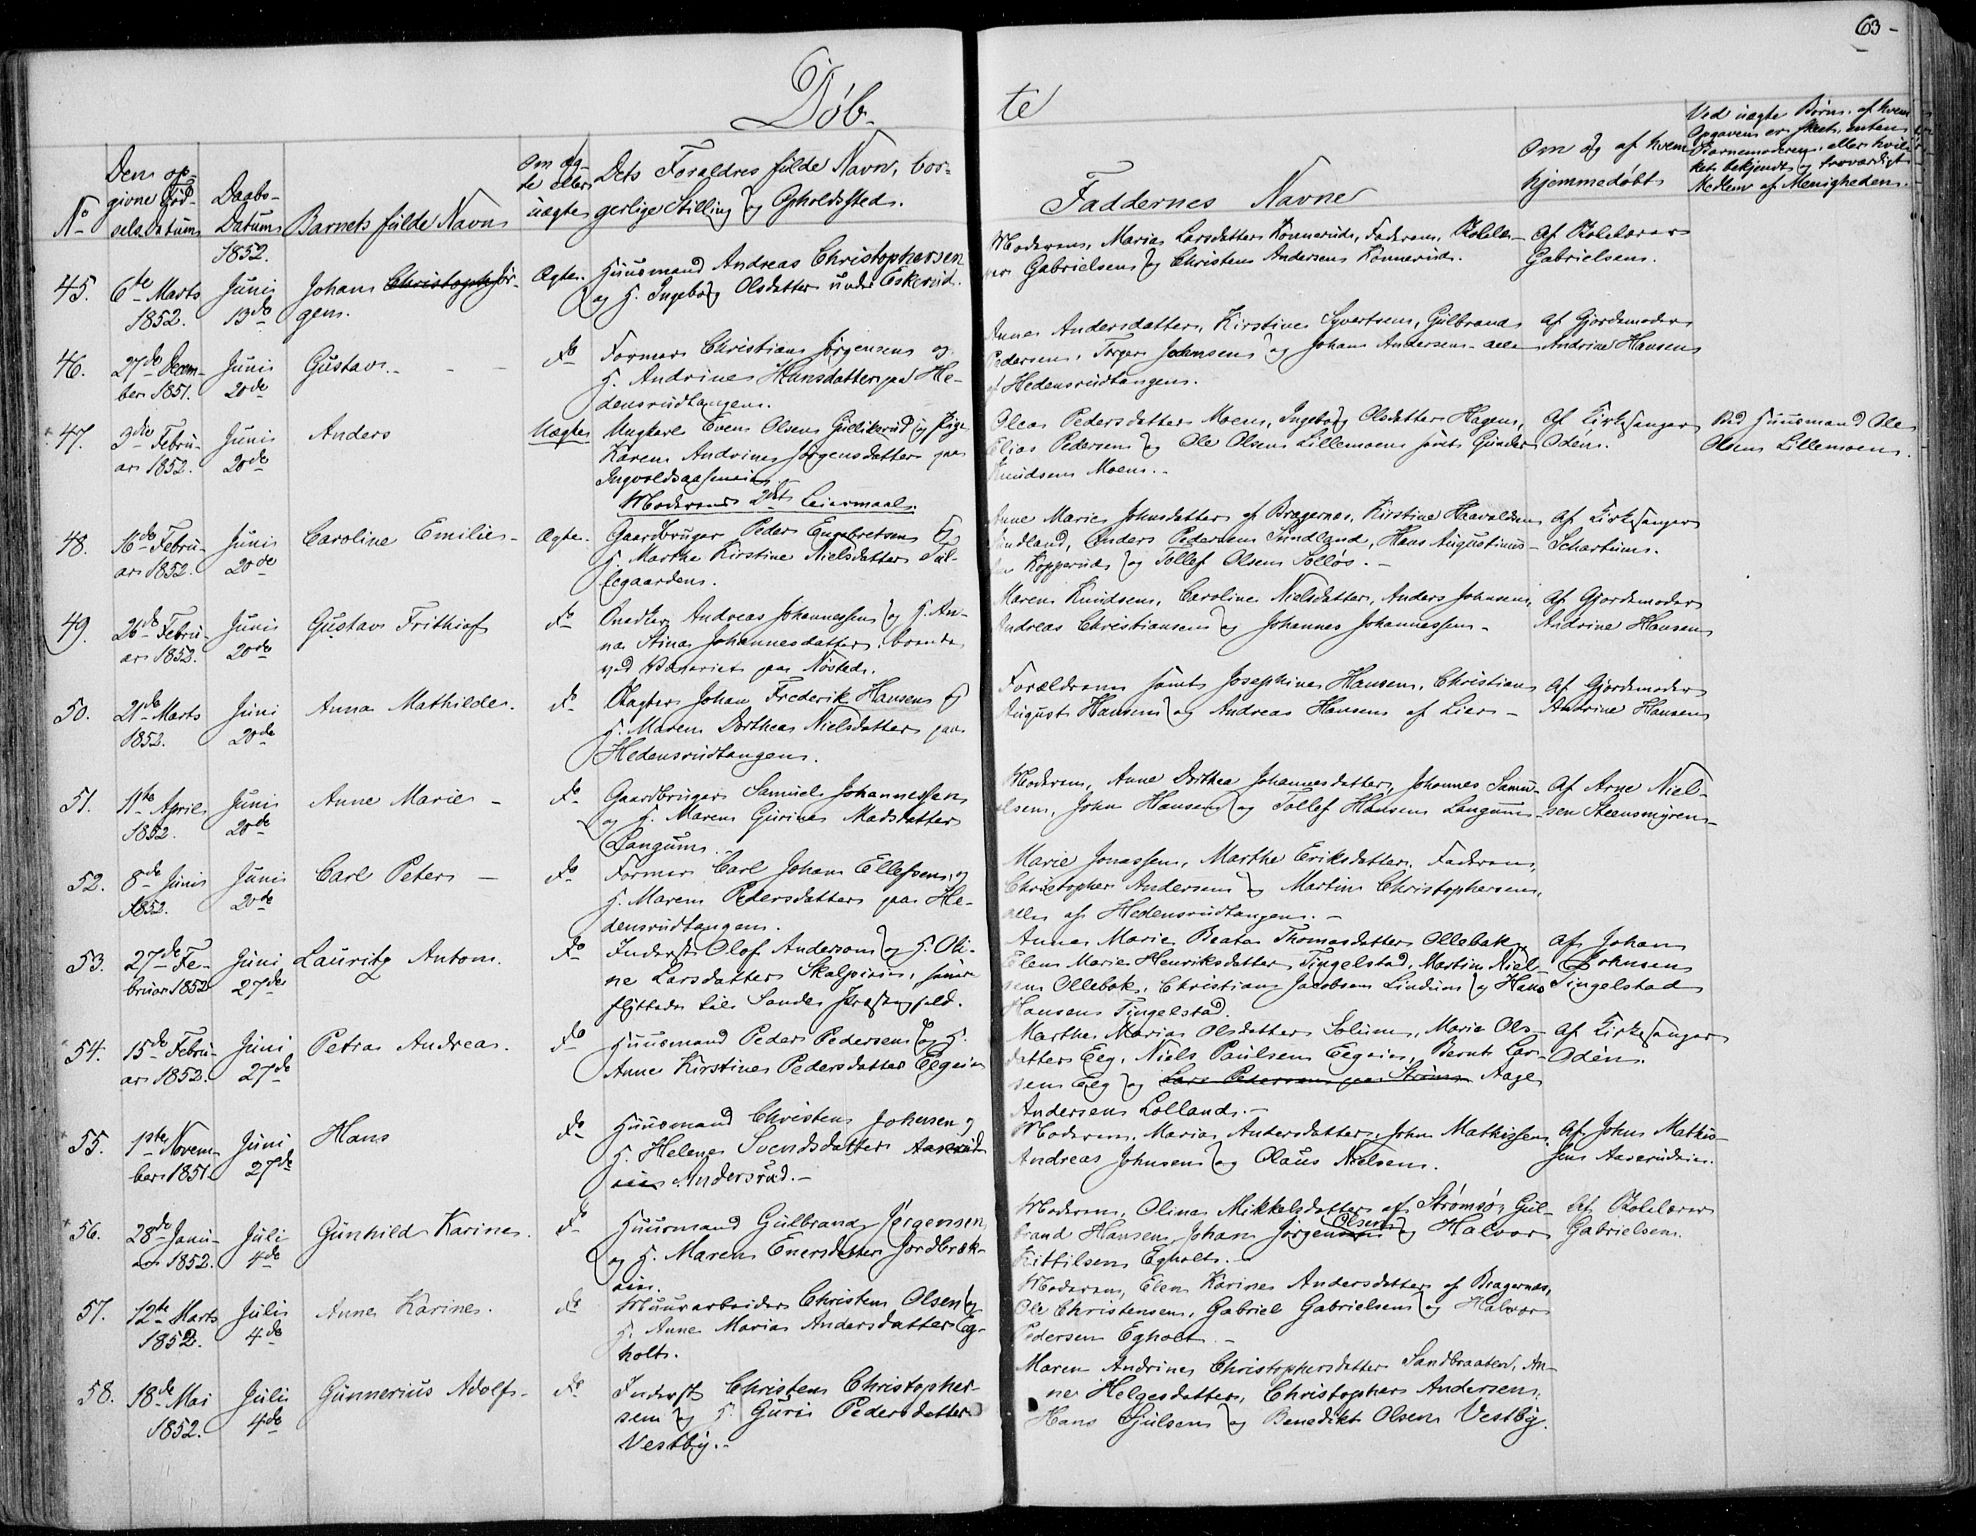 63-
Døb-
te
No
Den op-
givne Fød-
sels datum
Daabs-
Datum
1852.
Barnets fulde Navn
Om æg-
te eller
uægte
Dets Forældres fulde Navn, bor-
gerlige Stilling og Opholdssted.
Faddernes Navne
Om og af hvem
hjemmedøbt
Ved uægte Børn: af hvem
Opgaven er skeet, enten
Barnemoderen, eller hvil-
ket bekjendt og troværdigt
Medlem af Menigheden.
45.
6te Marts
1852.
Juni
13de
Johan Christoph Jør-
gen.
Ægte.
Huusmand Andreas Christophersen
og H. Ingeborg Olsdatter under Eskerud.
Moderen, Maria Larsdatter Konnerud, Faderen, Skolelæ-
rer Gabrielsen og Christen Andersen Konnerud.
Af Skolelærer
Gabrielsen.
46.
27de Decem-
ber 1851.
Juni
20de
Gustav.
do
Former Christian Jørgensen og
H. Andrine Hansdatter paa He-
densrudtangen.
Anne Andersdatter, Kirstine Syvertsen, Gulbrand
Pedersen, Torger Johnsen og Johan Andersen alle
af Hedensrudtangen.
Af Gjordemoder
Andrine Hansen
47.
3die Febru-
ar 1852.
Juni
20de
Anders
Uægte
Ungkarl Even Olsen Gullikrud og Pige
Karen Andrine Jørgensdatter paa
Ingvoldsaaseneie
Moderens 2det Leiermaal.
Olea Pedersdatter Moen, Ingeborg Olsdatter Hagen,
Elias Pedersen og Ole Olsen Lillemoen samt Gunder
Knudsen Moen.
Af Kirkesanger
Oden.
Ved Huusmand Ole
Olsen Lillemoen.
48.
16de Febru-
ar 1852.
Juni
20de
Caroline Emilie
Ægte.
Gaardbruger Peder Engebretsen og
H. Marthe Kirstine Nielsdatter Tul-
legaarden.
Anne Marie Johnsdatter af Bragernæs, Kirstine Haavaldsen
Sundland, Anders Pedersen Sundland, Hans Augustinus-
sen Kopperud og Tollef Olsen Solløs.
Af Kirkesanger
Schartum.
49.
26de Febru-
ar 1852.
Juni
20de
Gustav Frithiof
do
Snedker Andreas Johannessen og H. An-
na Stina Johannesdatter, boende
ved Værveriet paa Nøsted.
Maren Knudsen, Caroline Nielsdatter, Anders Johnsen,
Andreas Christiansen og Johannes Johannessen.
Af Gjordemoder
Andrine Hansen
50.
21de Marts
1852.
Juni
20de
Anna Mathilde.
do
Slagter Johan Frederik Hansen og
H. Maren Dorthea Nielsdatter paa
Hedensrudtangen.
Forældrene samt Josephine Hansen, Christian
August Hansen og Andreas Hansen af Lier
Af Gjordemoder
Andrine Hansen
51.
11te April
1852.
Juni
20de
Anne Marie
do
Gaardbruger Samuel Johannessen
og H. Maren Gurine Madsdatter
Langum.
Moderen, Anne Dorthea Johannesdatter, Johannes Samu-
elsen, John Hansen og Tollef Hansen Langum
Af Arne Niel-
sen Steensmyren
52.
8de Juni
1852.
Juni
20de
Carl Peter
do
Former Carl Johan Ellefsen og
H. Maren Pedersdatter paa He-
densrudtangen.
Marie Jonassen, Marthe Eriksdatter, Faderen,
Christopher Andersen og Martin Christophersen,
alle af Hedensrudtangen.
53.
27de Fe-
bruar 1852
Juni
27de
Lauritz Anton.
do
Inderst Olof Anderson og H. Oli-
ne Larsdatter Skalpien, senere
flyttede til Sande Præstegjeld.
Anne Marie Beata Thomasdatter Ollebak,
Elen Marie Henriksdatter Tingelstad, Martin Niel-
sen Ollebak, Christian Jacobsen Lindum og Hans
Hansen Tingelstad.
Af Johan
Johnsen
Tingelstad
54.
15de Febru-
ar 1852.
Juni
27de
Petra Andrea.
do
Huusmand Peder Pedersen og H.
Anne Kirstine Pedersdatter Eegeie
Marthe Maria Olsdatter Solum, Marie Ols-
datter Eeg, Niels Paulsen Eegeie, Bernt Lar-
sen Eeg og Lars Pedersen paa Strøm Aage
Andersen Lolland.
Af Kirkesanger
Oden.
55.
1ste Novem-
ber 1851
Juni
27de
Hans
do
Huusmand Christen Johnsen og
H. Helene Svendsdatter Aaserud
eie Andersrud.
Moderen, Maria Andersdatter, John Mathissen,
Andreas Johnsen og Claus Nielsen.
Af John Mathis-
sen Aaserudeie.
56.
28de Janu-
ar 1852.
Juli
4de
Gunhild Karine.
do
Huusmand Gulbrand Jørgensen
og H. Maren Enersdatter Jordbræk-
eie.
Moderen, Oline Mikkelsdatter af Strømsø, Gul-
brand Hansen, Johan Jørgensen Olsen og Halvor
Kittilsen Egholt.
Af Skolelærer
Gabrielsen.
57.
12te Marts
1852.
Juli
4de
Anne Karine.
do
Muurarbeider Christen Olsen og
H. Anne Maria Andersdatter Eg-
holt.
Moderen, Elen Karine Andersdatter af Bragernæs,
Ole Christensen, Gabriel Gabrielsen og Halvor
Pedersen Egholt.
58.
18de Mai
1852.
Juli
4de
Gunnerius Adolf
do
Inderst Christen Christopher-
sen og H. Guri Pedersdatter
Vestby.
Maren Andrine Christophersdatter Sandbraaten, An-
ne Helgesdatter, Christopher Andersen,
Hans Gulsen og Benedikt Olsen Vestby.